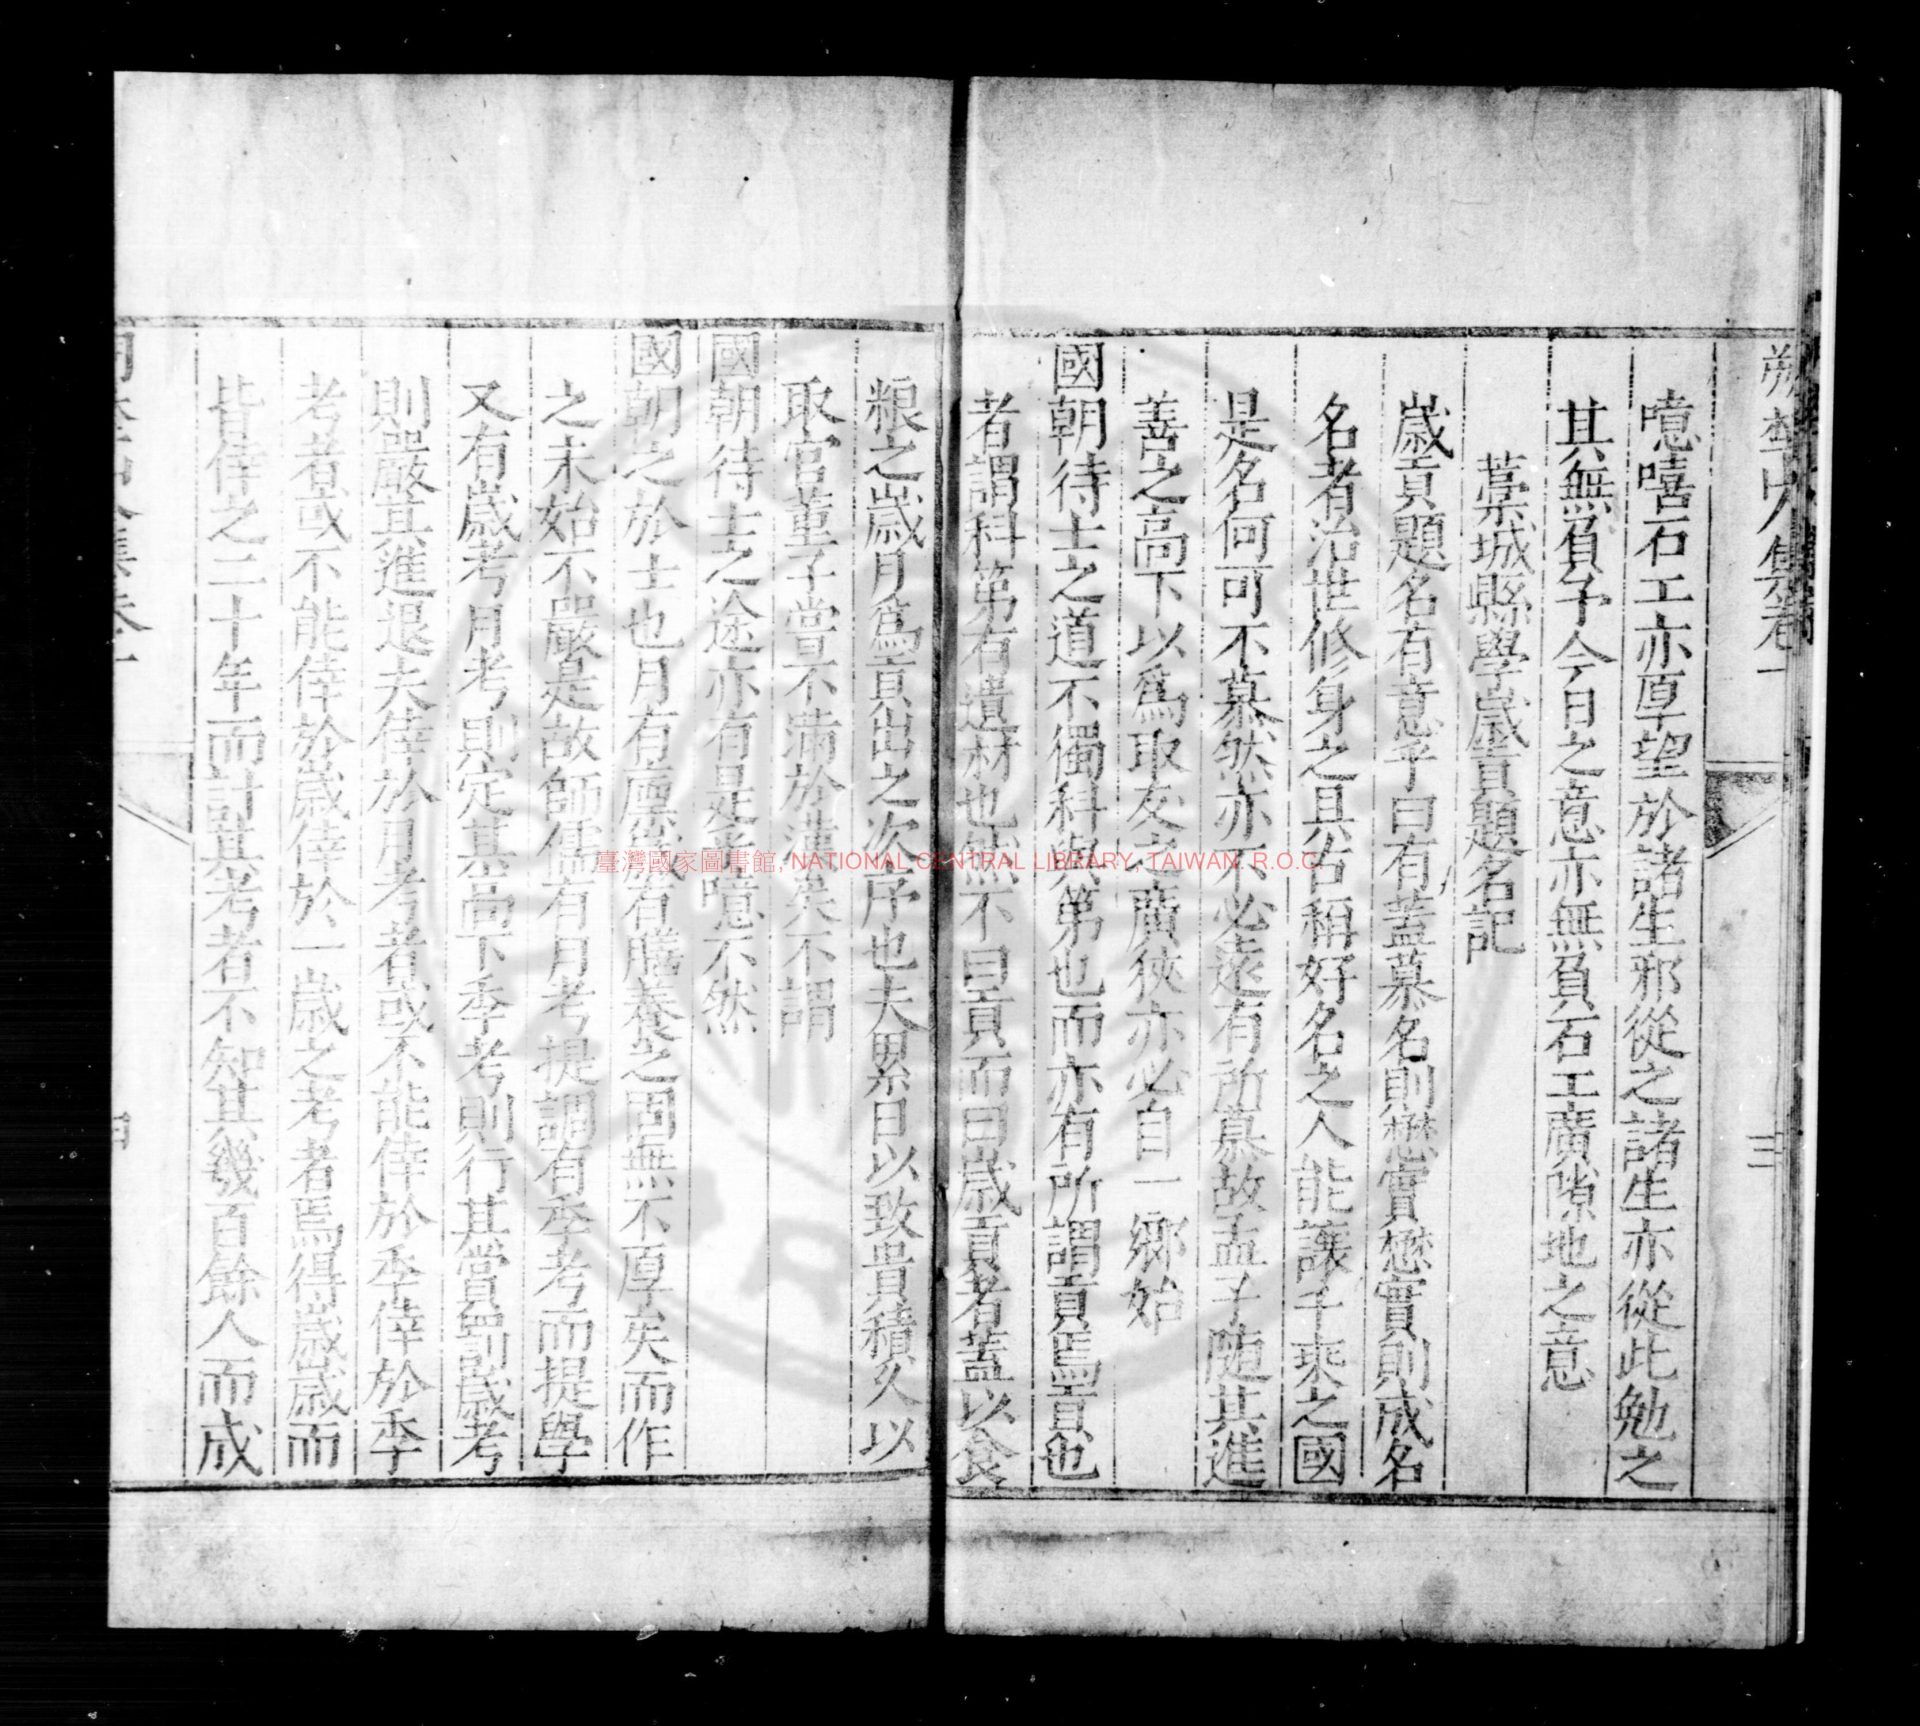 噫嘻石工亦厚望於諸生邪從之諸生亦從此勉之
其無負予今日之意亦無負石工廣隙地之意
藁城縣學歲貢題名記
歲貢題名有意乎曰有蓋慕名則懋實懋實則成名
名者治世修身之具古稱好名之人能讓千乘之國
是名何可不慕然亦不必遠有所慕故孟子隨其進
善之高下以爲取友之廣狹亦必自一鄉始
國朝待士之道不獨科與第也而亦有所謂貢焉貢也
者謂科第有遺材也然不曰貢而曰歲貢者蓋以食
粮之歲月爲貢出之次序也夫累日以致貴積久以
取官董子嘗不滿於漢矣不謂
國朝待士之途亦有是乎噫不然
國朝之於士也月有廩歲有膳養之固無不厚矣而作
之未始不嚴是故師儒有月考提調有季考而提學
又有歲考月考則定其高下季考則行其賞罰歲考
則嚴其進退夫倖於月考者或不能倖於季倖於季
考者或不能倖於歲倖於一歲之考者焉得歲歲而
皆倖之二十年而計其考者不知其幾百餘人而成
臺灣國家圖書館, NATIONAL CENTRAL LIBRARY, TAIWAN, R.O.C.